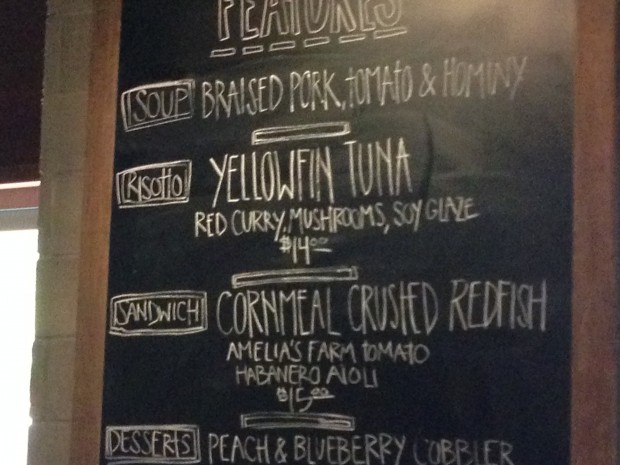 FEATURES
SOUP BRAISED PORK, TOMATO & HOMINY
RISOTTO YELLOWFIN TUNA
RED CURRY, MUSHROOMS, SOY GLAZE
$14.00
SANDWICH CORNMEAL CRUSTED REDFISH
AMELIA'S FARM TOMATO
HABANERO AIOLI
$15.00
DESSERTS PEACH & BLUEBERRY COBBLER